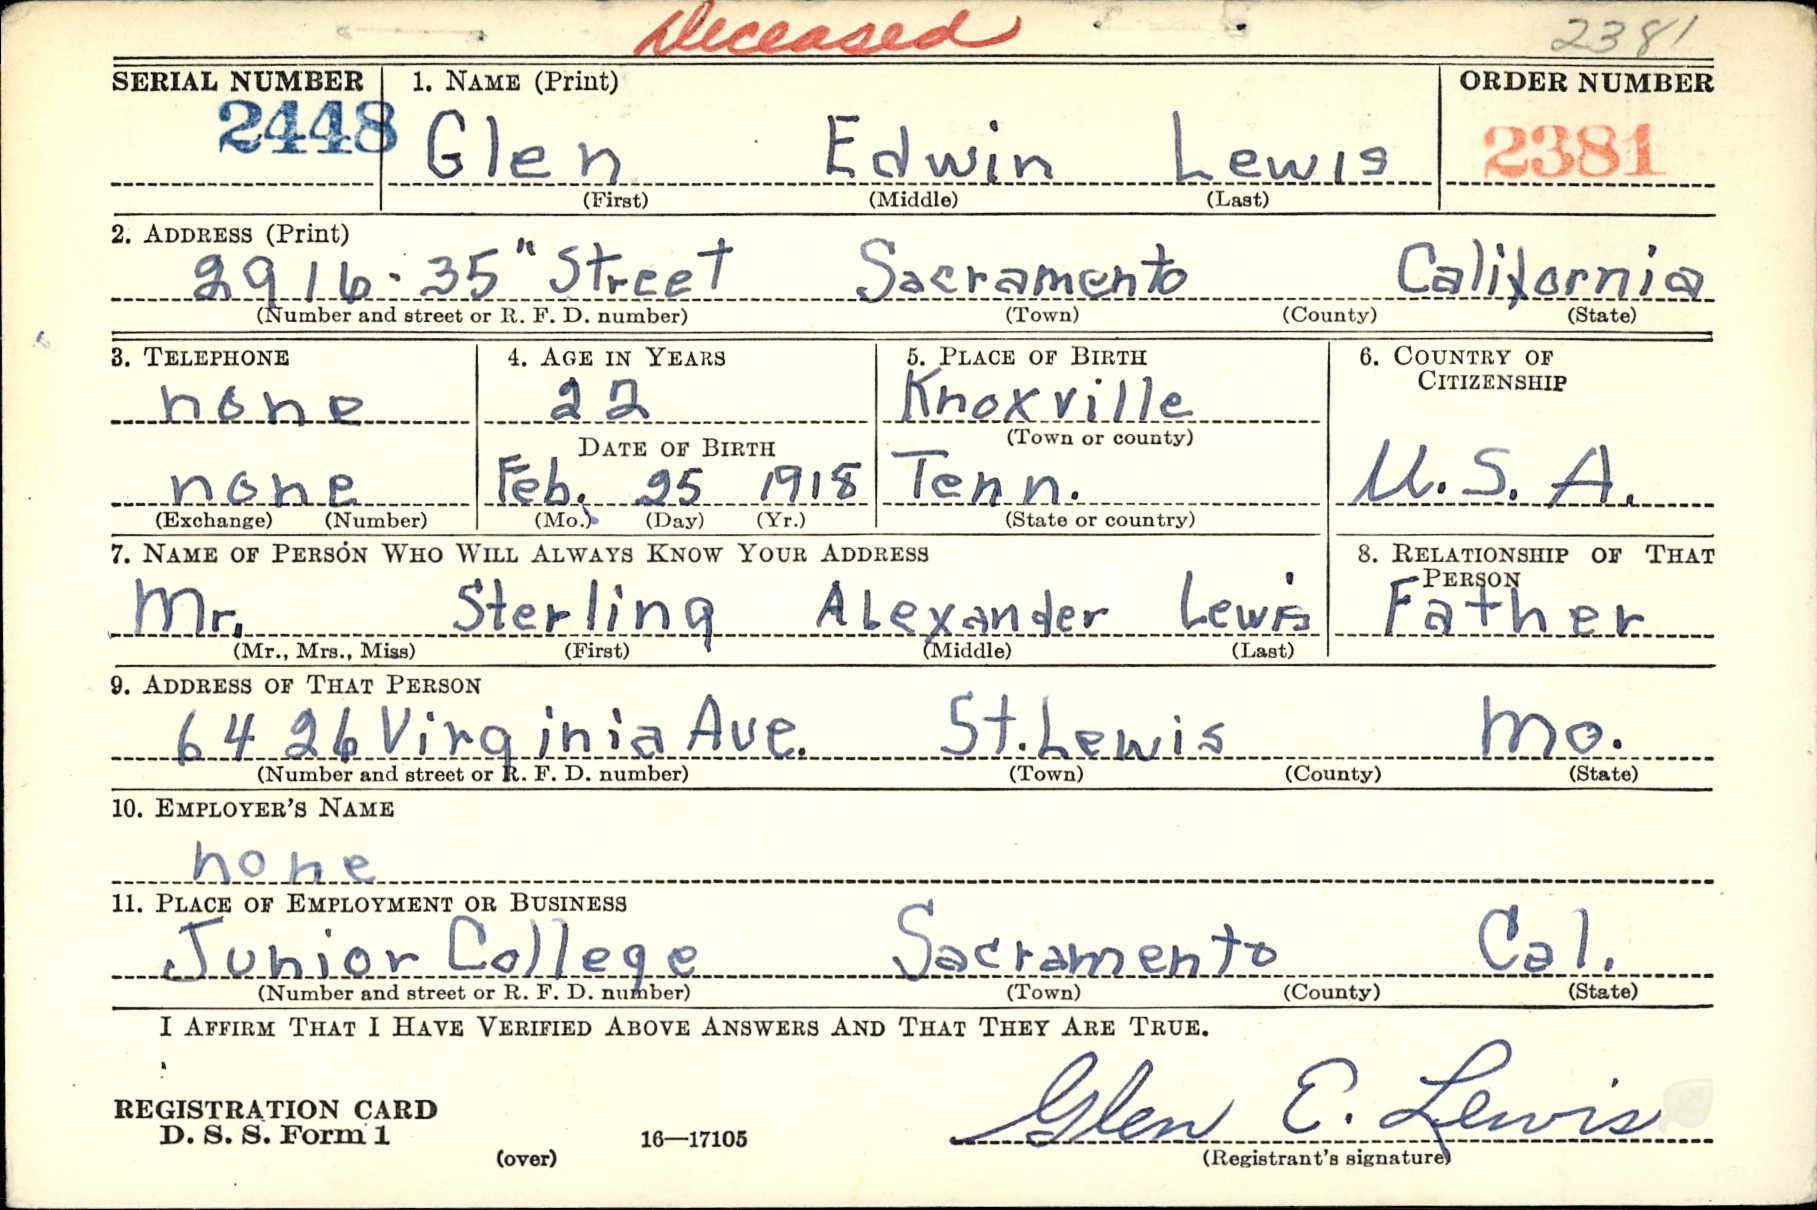 Deceased 2381
SERIAL NUMBER 1. NAME (Print) ORDER NUMBER
2448 Glen Edwin Lewis 2381
(First) (Middle) (Last)
2. ADDRESS (Print)
2916 - 35" Street Sacramento California
(Number and street or R. F. D. number) (Town) (County) (State)
3. TELEPHONE 4. AGE IN YEARS 5. PLACE OF BIRTH 6. COUNTRY OF
CITIZENSHIP
none 22 Knoxville
DATE OF BIRTH (Town or county)
none Feb. 25 1918 Tenn. U.S.A.
(Exchange) (Number) (Mo.) (Day) (Yr.) (State or country)
7. NAME OF PERSON WHO WILL ALWAYS KNOW YOUR ADDRESS 8. RELATIONSHIP OF THAT
PERSON
Mr. Sterling Alexander Lewis Father
(Mr., Mrs., Miss) (First) (Middle) (Last)
9. ADDRESS OF THAT PERSON
6426 Virginia Ave. St. Lewis Mo.
(Number and street or R. F. D. number) (Town) (County) (State)
10. EMPLOYER'S NAME
none
11. PLACE OF EMPLOYMENT OR BUSINESS
Junior College Sacramento Cal.
(Number and street or R. F. D. number) (Town) (County) (State)
I AFFIRM THAT I HAVE VERIFIED ABOVE ANSWERS AND THAT THEY ARE TRUE.
REGISTRATION CARD
D. S. S. Form 1 16—17105 Glen E. Lewis
(over) (Registrant's signature)